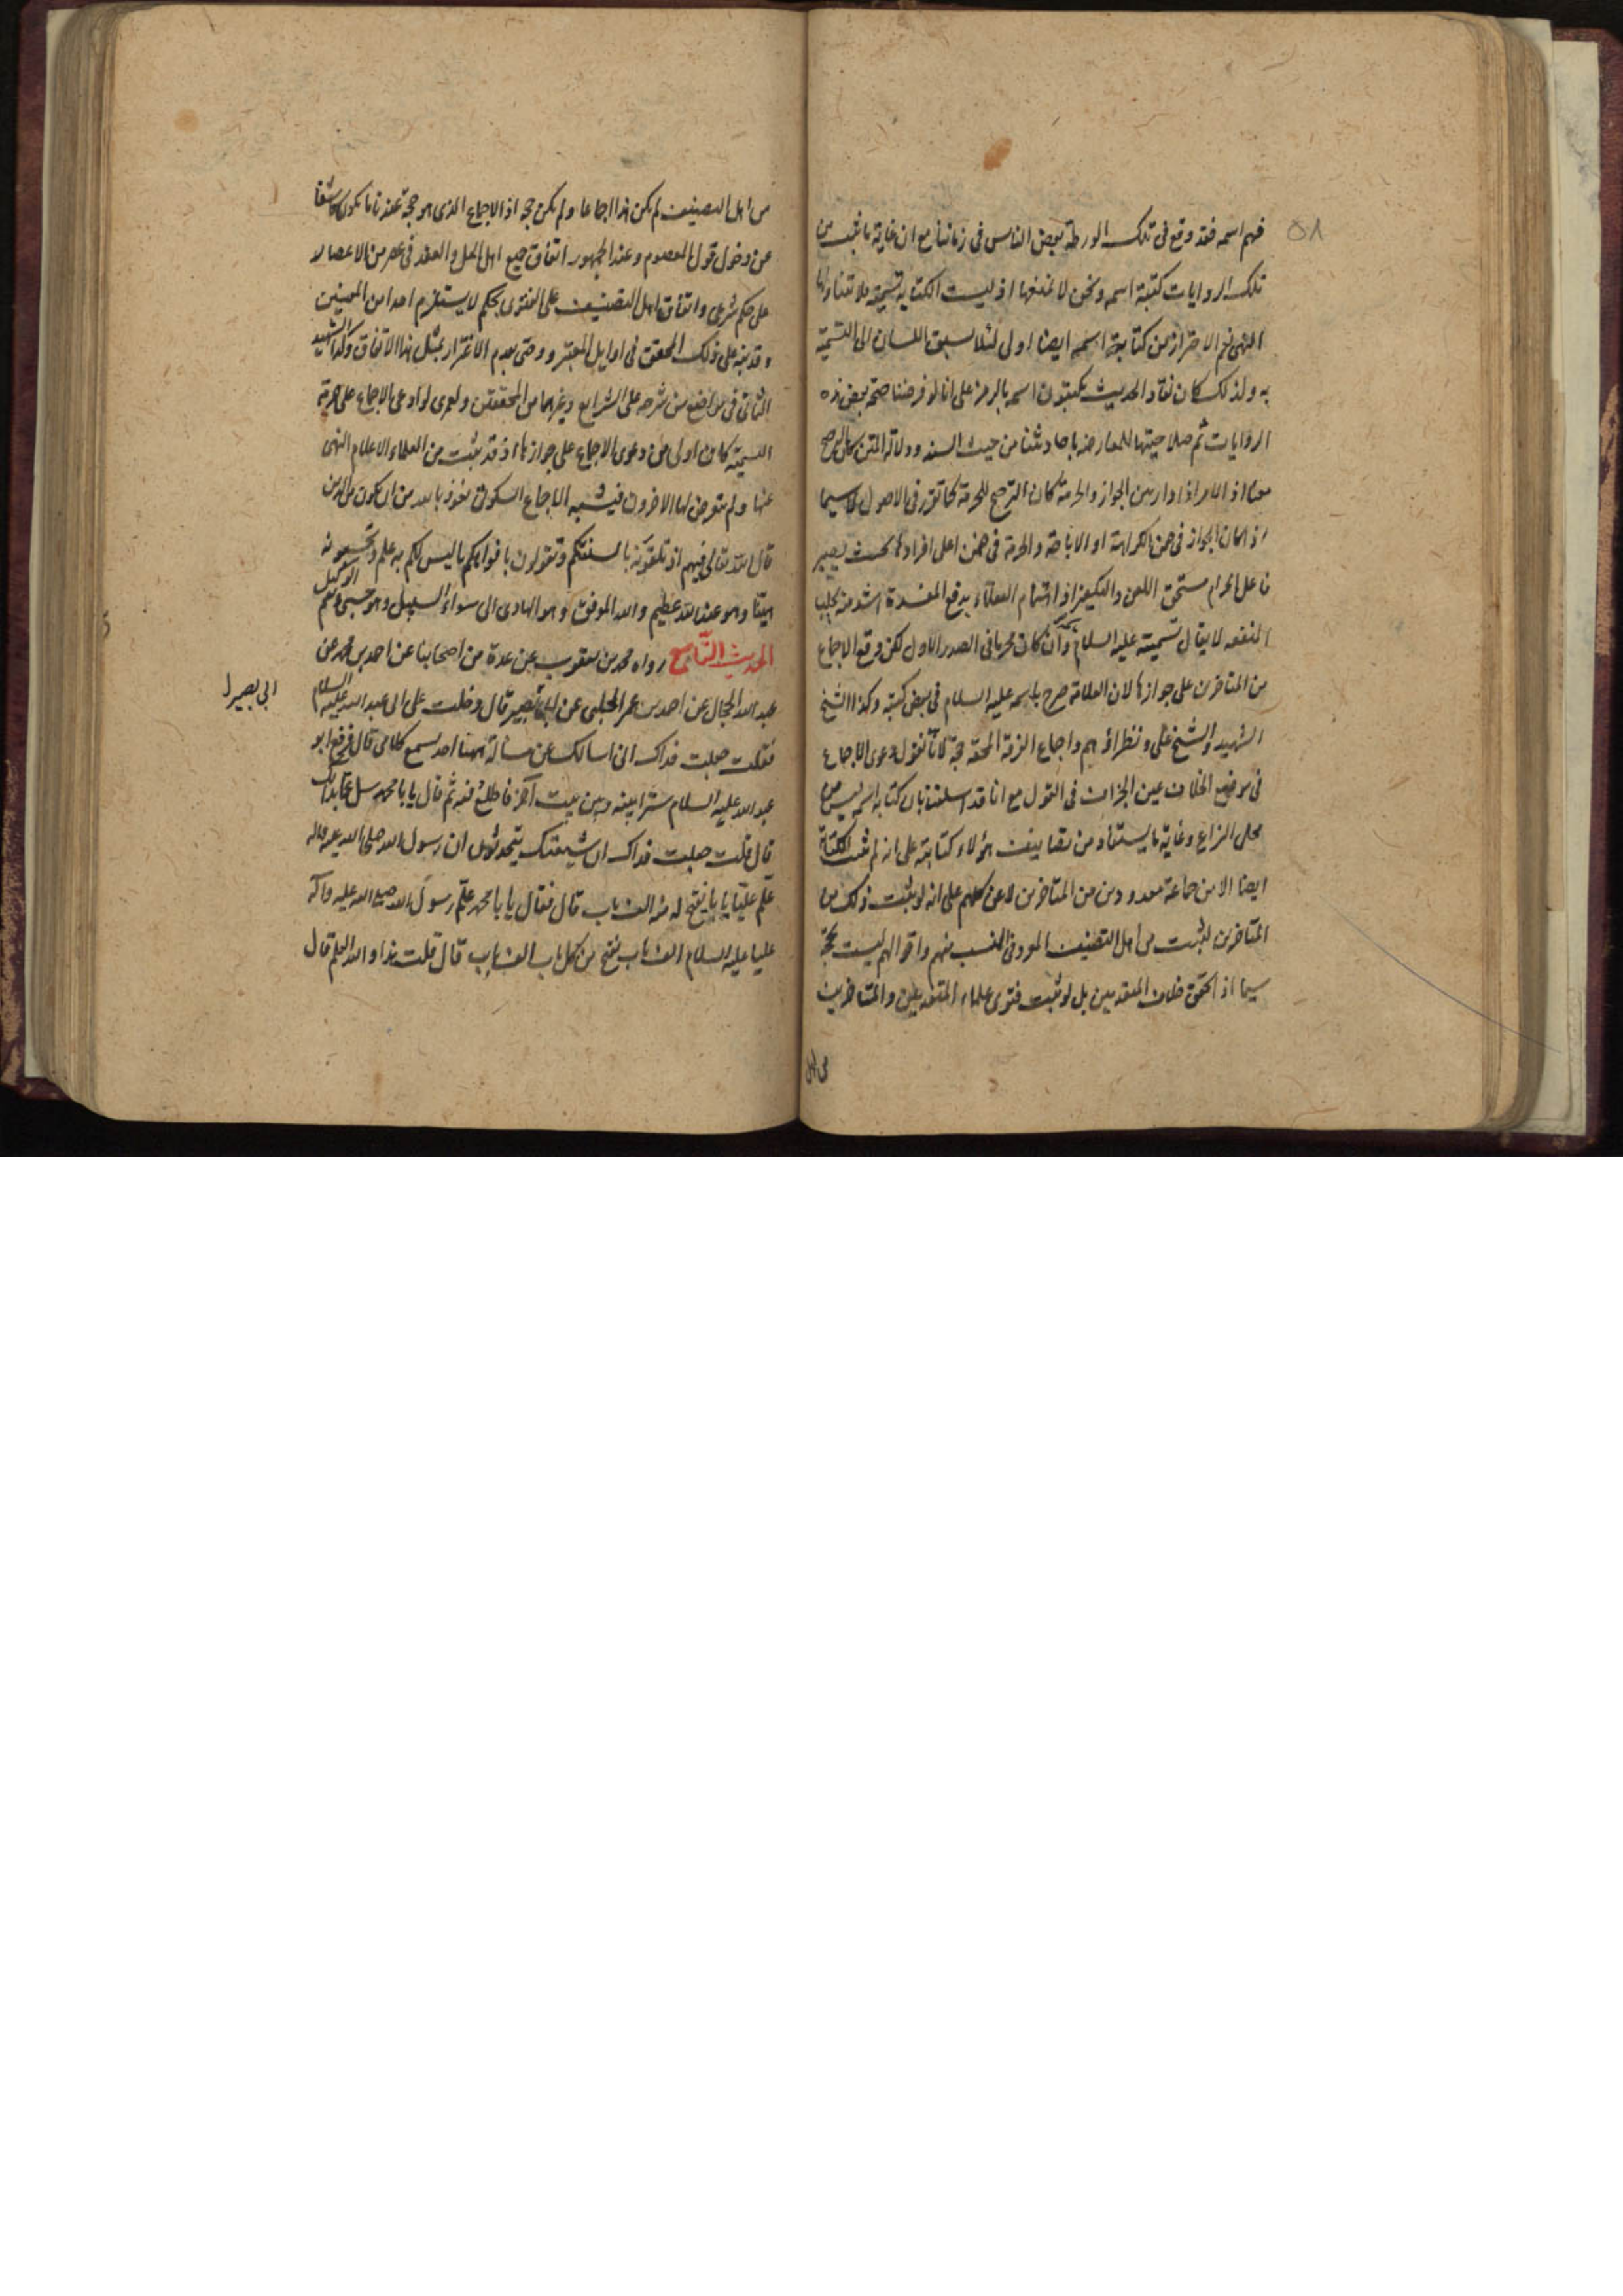 ٥٨
فهم اسمه فقد وقع فى تلك الورطة بعض الناس فى زماننا مع ان غاية ما ثبت من
تلك الروايات كتبة اسمه ونحن لا نمنعها اذ ليست الكتابة تسمية فلا تتناولها
النهى نعم الاحتراز من كتابة اسمه ايضا اولى لئلا يسبق اللسان الى التسمية
به ولذلك كان نقاد الحديث يكتبون اسمه بالرمز على انا لو فرضنا صحة بعض هذه
الروايات ثم صلاحيتها للمعارضة باحاديثنا من حيث السند ودلالة المتن كان الترجيح
معنا اذ الامر اذا دار بين الجواز والحرمة كان الترجيح للحرمة كما تقرر فى الاصول لا سيما
اذ كان الجواز فى ضمن الكراهة او الاباحة والحرمة فى ضمن اعلى افرادها بحيث يصير
فاعل الحرام مستحق اللعن والتكفير اذ اهتمام العقلاء بدفع المفسدة اشد منه بجلب
المنفعه لا يقال تسميته عليه السلام وان كان محرما فى الصدر الاول لكن وقع الاجماع
من المتاخرين على جوازها لان العلامة صرح باسمه عليه السلام فى بعض كتبه وكذا الشيخ
الشهيد والشيخ على ونظراؤهم واجماع الفرقة المحقه حجة لانا نقول دعوى الاجماع
فى موضع الخلاف عين الجزاف فى القول مع انا قد اسلفنا بان كتابة اسمه ليس من
محل النزاع وغاية ما يستفاد من تصانيف هؤلاء كتابته على انه لم تثبت الكتابة
ايضا الا من جماعة معدودين من المتاخرين لا عن كلهم على انه لو ثبت ذلك من
المتاخرين لثبت من اهل التصنيف المعروفى النسب منهم واقوالهم ليست بحجة
سيما اذ تحقق خلاف المتقدمين بل لو ثبت فتوى علماء المتقدمين والمتاخرين
من اهل
من اهل التصنيف لم يكن هذا اجماعا ولم يكن حجة اذ الاجماع الذى هو حجة عندنا ما يكون كاشفا
عن دخول قول المعصوم وعند الجمهور اتفاق جميع اهل الحل والعقد فى عصر من الاعصار
على حكم شرعى واتفاق اهل التصنيف على الفتوى بحكم لا يستلزم احدا من المعنيين
وقد نبه على ذلك المحقق فى اوايل المعتبر ووصى بعدم الاغترار بمثل هذا الاتفاق وكذا الشهيد
الثانى فى مواضع من شرحه على الشرايع وغيرهما من المحققين ولعمرى لو ادعى الاجماع على حرمة
التسمية كان اولى من دعوى الاجماع على جوازها اذ قد ثبت من العلماء الاعلام النهى
عنها ولم يتعرض لها الاخرون فيشبه الاجماع السكوتى نعوذ بالله من ان يكون من الذين
قال الله تعالى فيهم اذ تلقونه بالسنتكم وتقولون بافواهكم ما ليس لكم به علم وتحسبونه
هينا وهو عند الله عظيم والله الموفق وهو الهادى الى سواء السبيل وهو حسبى ونعم الوكيل
الحديث التاسع رواه محمد بن يعقوب عن عدة من اصحابنا عن احمد بن محمد عن
عبد الله الحجال عن احمد بن عمر الحلبى عن ابى بصير قال دخلت على ابى عبد الله عليه السلام
ابى بصير
فقلت جعلت فداك انى اسالك عن مسألة ههنا احد يسمع كلامى قال فرفع ابو
عبد الله عليه السلام سترا بينه وبين بيت آخر فاطلع فيه ثم قال يا با محمد سل عما بدا لك
قال قلت جعلت فداك ان شيعتك يتحدثون ان رسول الله صلى الله عليه واله
علم عليا بابا يفتح له منه الف باب قال فقال يا با محمد علم رسول الله صلى الله عليه وآله
عليا عليه السلام الف باب يفتح من كل باب الف باب قال قلت هذا والله العلم قال